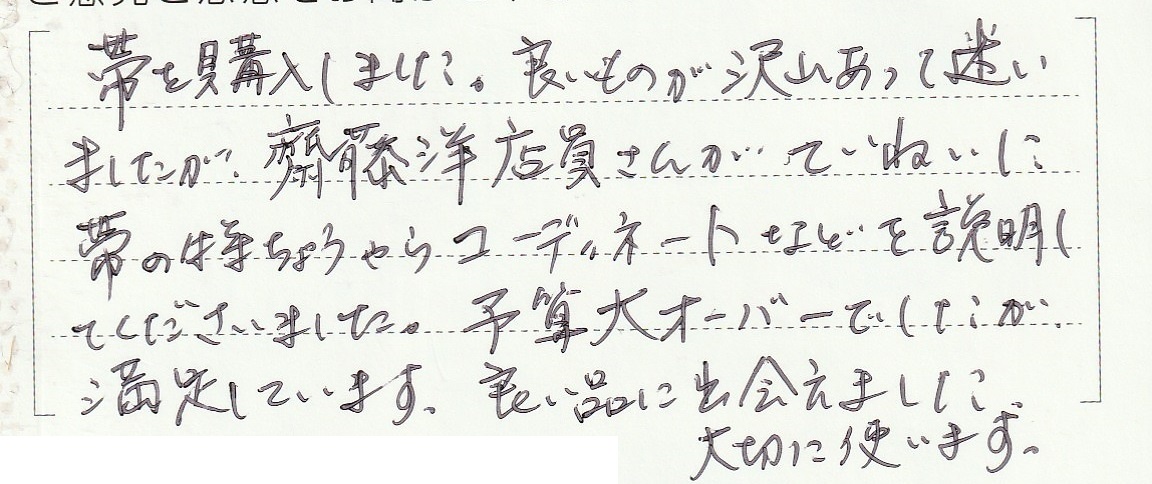 帯を購入しました。良いものが沢山あって迷い
ましたが、齋藤洋店員さんがていねいに
帯の特ちょうやらコーディネートなどを説明し
てくださいました。予算大オーバーでしたが、
満足しています。良い品に出会えました。
大切に使います。